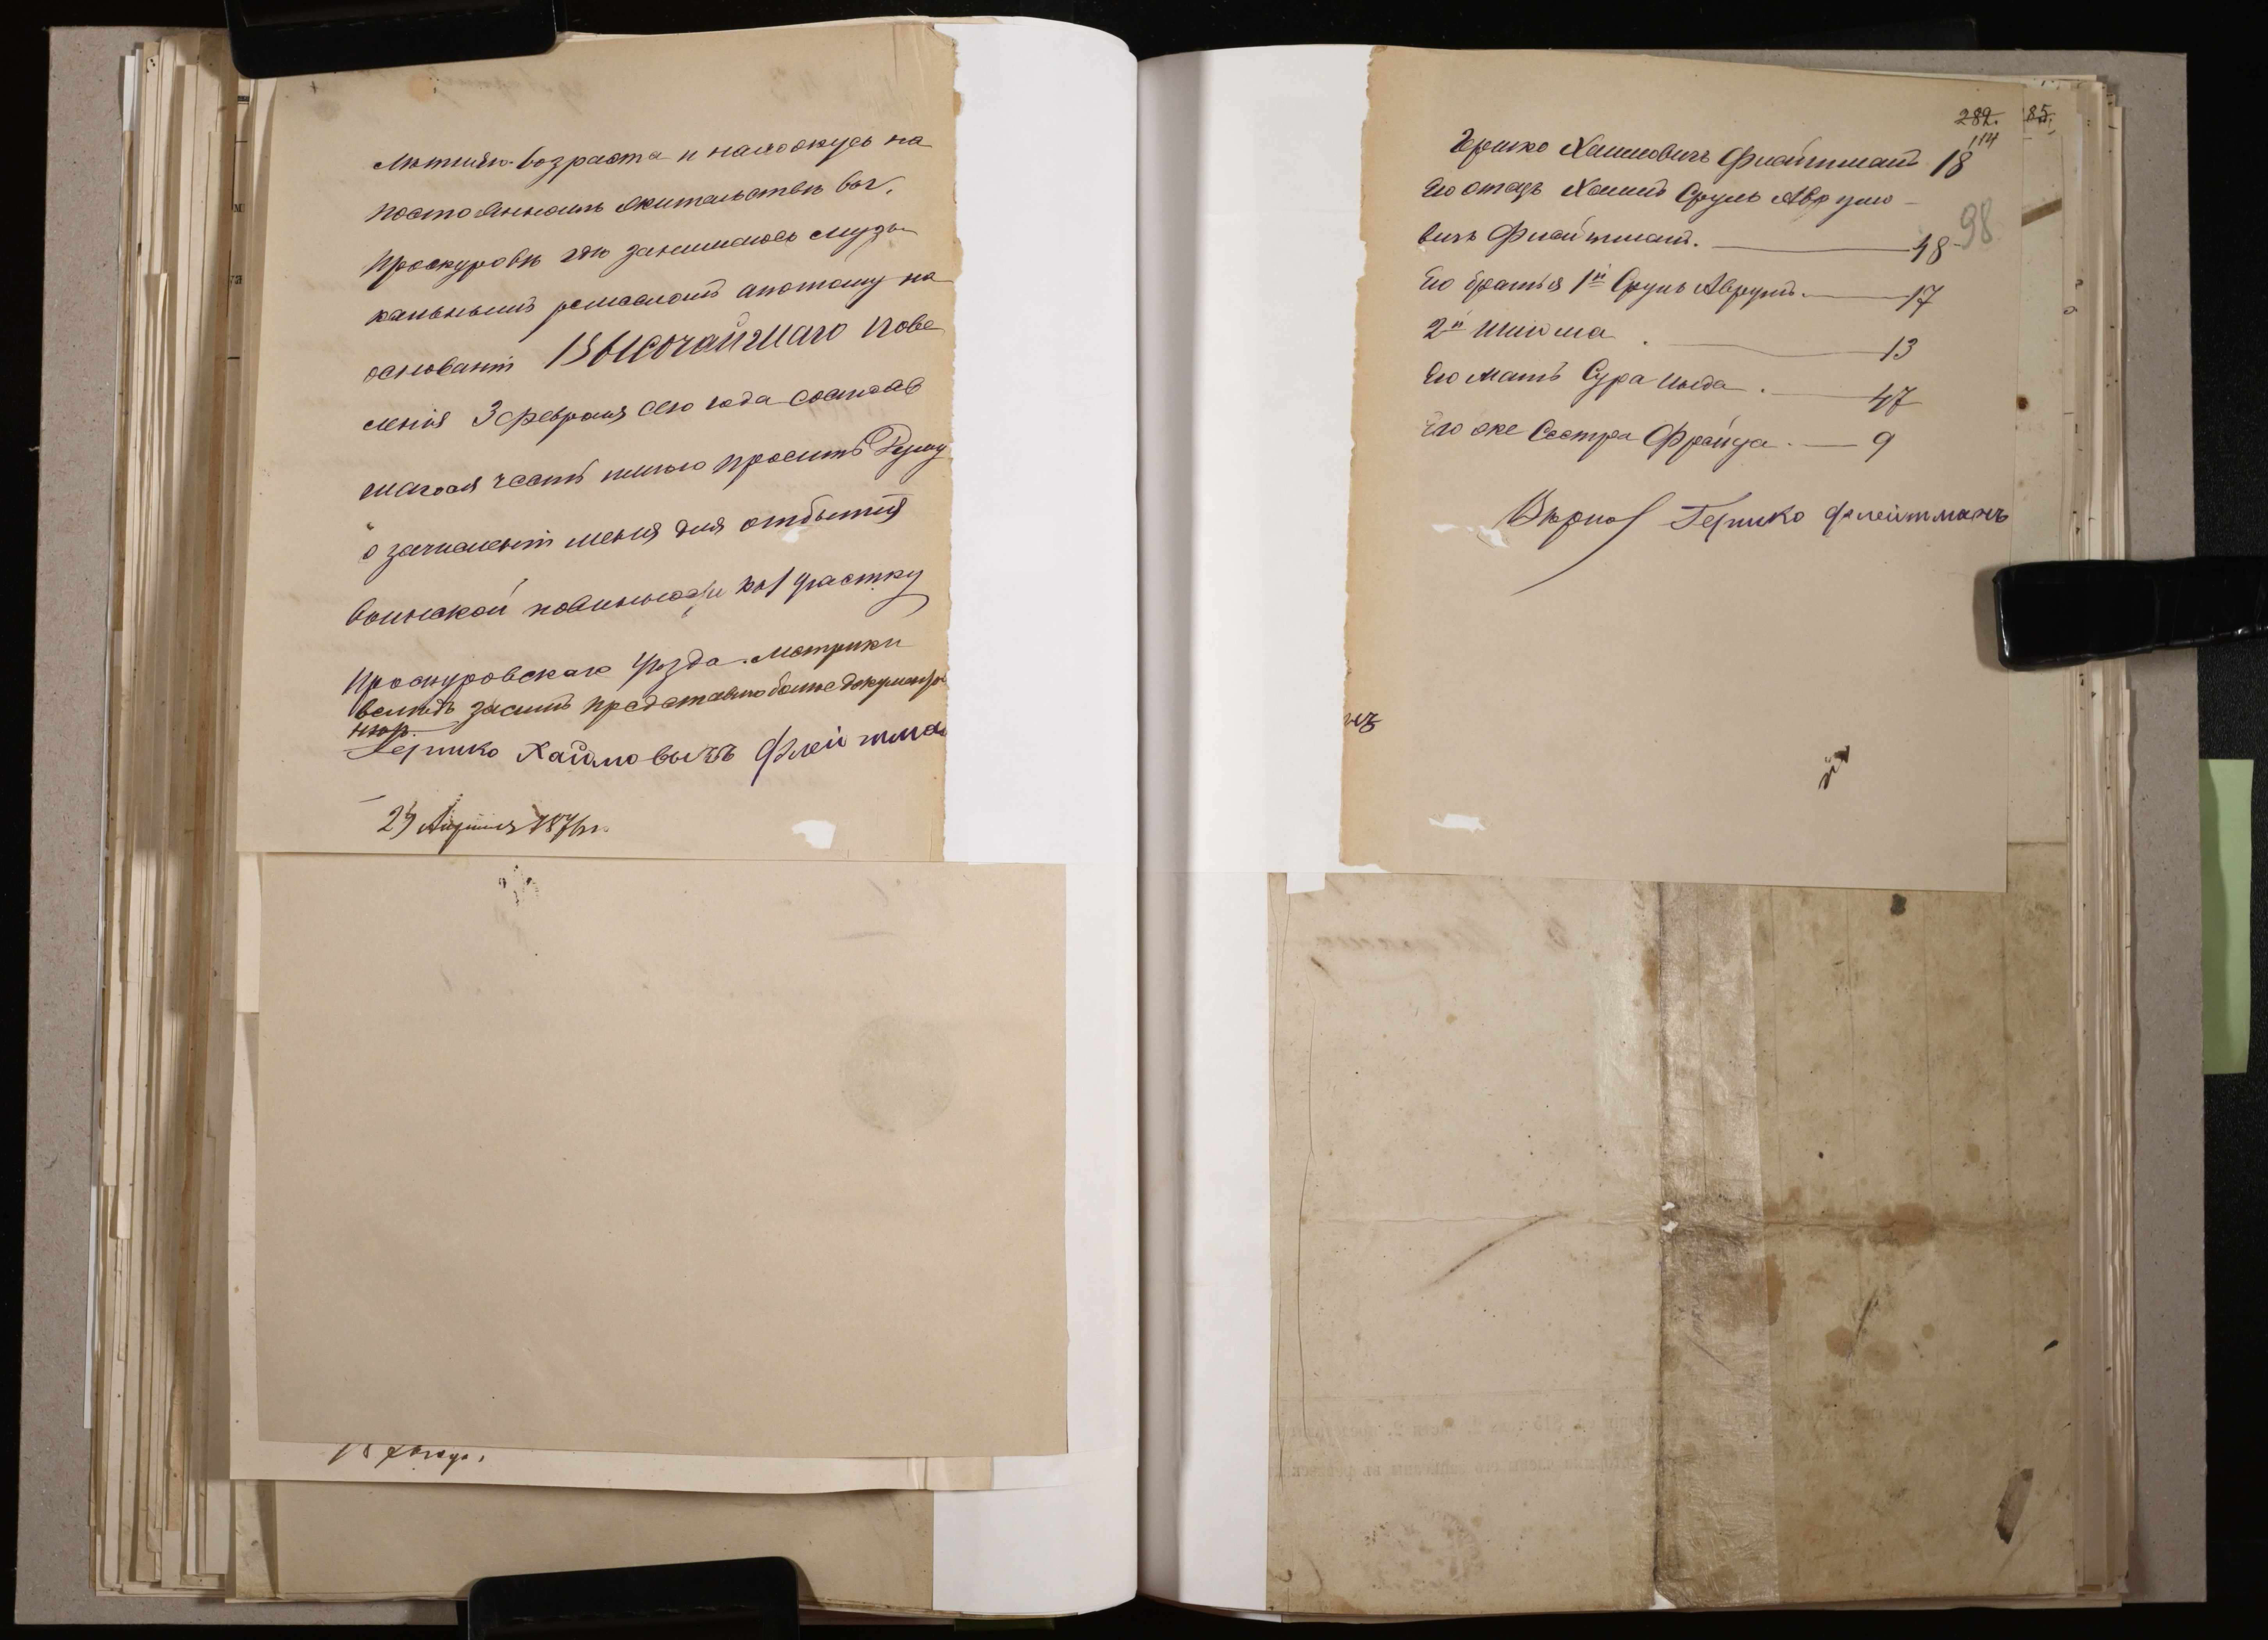 лѣтняго возраста и нахожусь на
постоянномъ жительствѣ въ г.
Проскуровѣ гдѣ занимаюсь музы
кальнымъ ремесломъ а потому на
основаніи Высочайшаго пове
ленія 3 февраля сего года состояв
шагося честь имѣю просить Думу
о зачисленіи меня для отбытія
воинской повинности къ 1 участку
Проскуровскаго уѣзда. Метрики
вслѣдъ засимъ представлю
Гершко Хаимовичъ Флейтма
Апрѣля
282. 85.
114
Гершко Хаимовичъ Флейтманъ 18
Его отецъ Хаимъ Сруль Аврумо
вичъ Флейтманъ. 48
98
Его братья 1й Сруль Аврумъ. 17
2й Шлома 13
Его мать Сура 47
Его же Сестра Фрейда. 9
Вѣрно Гершко Флейтманъ